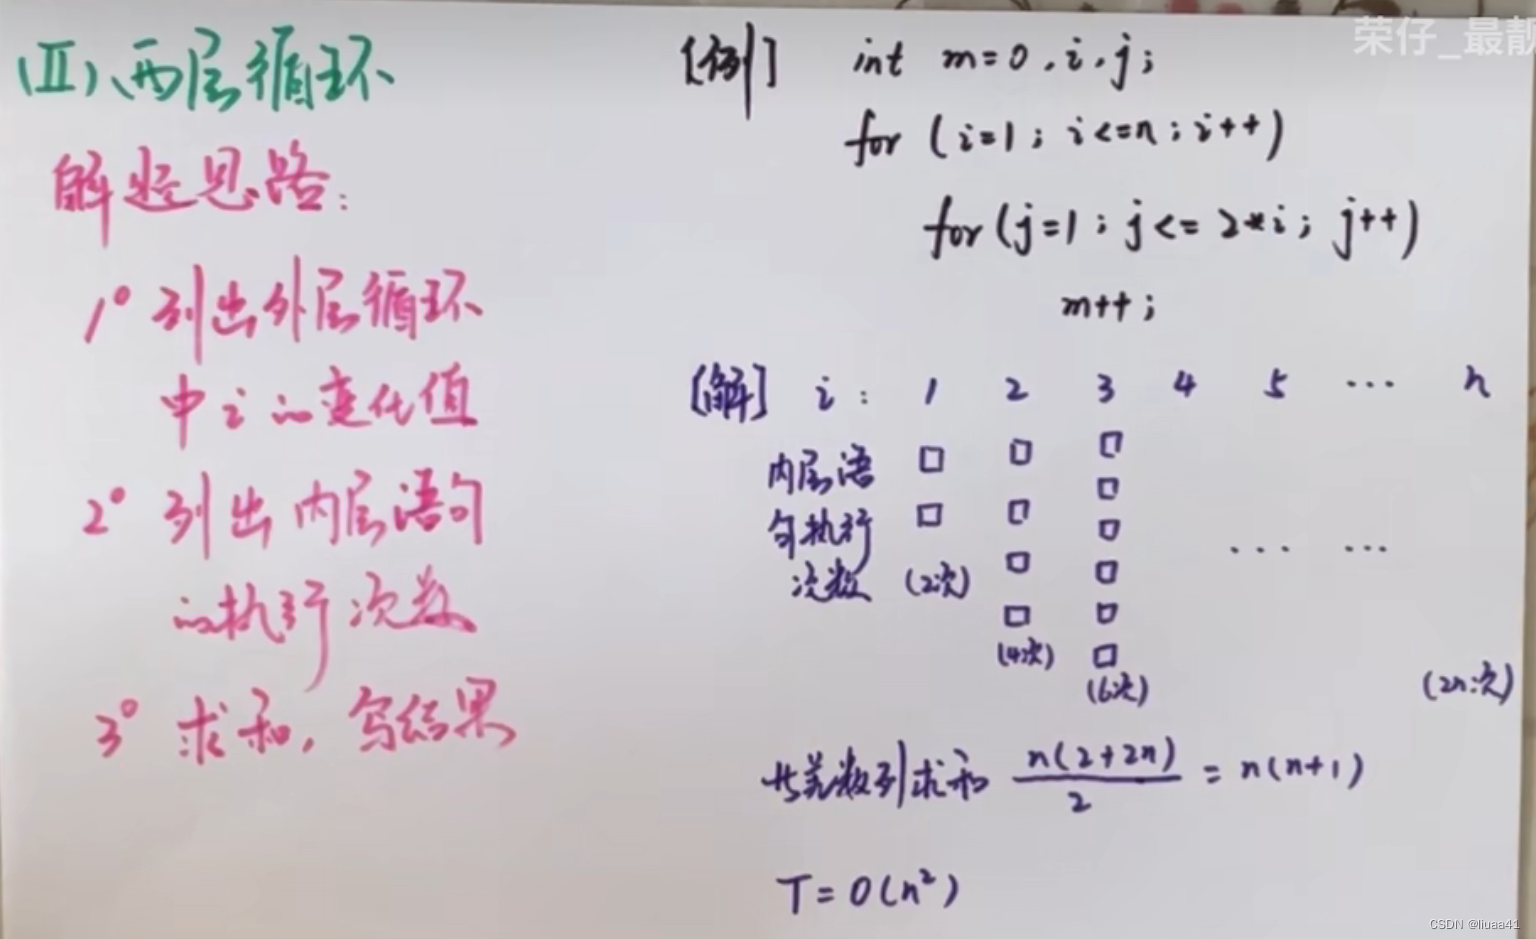 (Ⅱ)、两层循环
解题思路:
1° 列出外层循环
中i的变化值
2° 列出内层语句
的执行次数
3° 求和,写结果
荣仔_最靓
[例] int m=0,i,j;
for (i=1; i<=n; i++)
for (j=1; j<=2*i; j++)
m++;
[解] i: 1 2 3 4 5 … n
内层语
句执行
次数 (2次)
(4次)
(6次)
(2n次)
… …
等差数列求和 n(2+2n)/2 = n(n+1)
T=O(n²)
CSDN @liuaa41